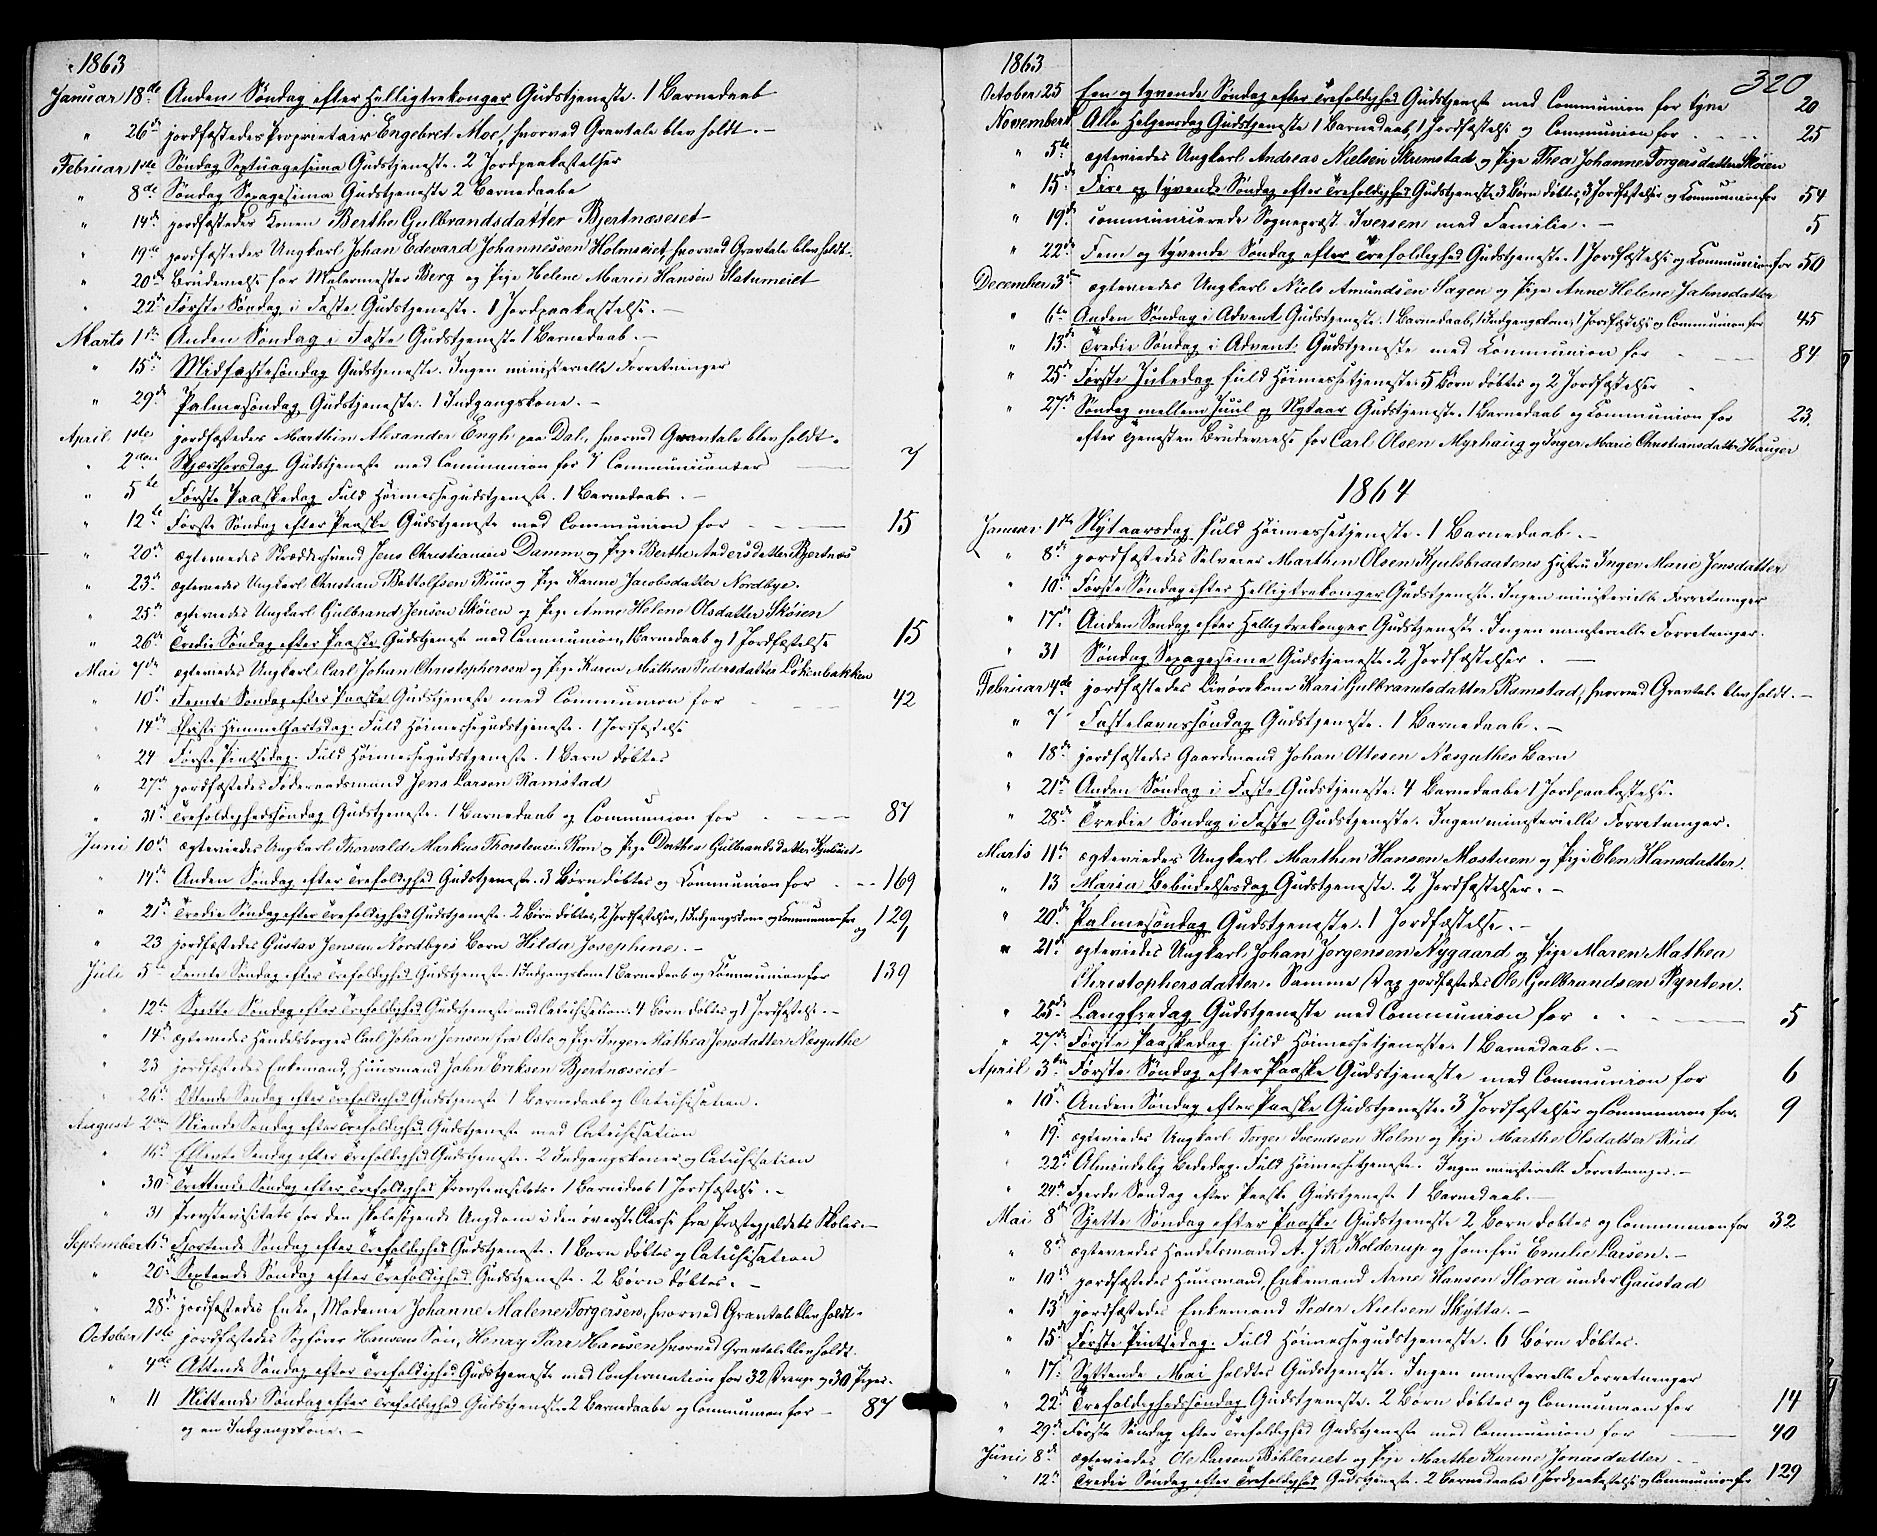 1863
Januar 18de Anden Søndag efter Helligtrekonger Gudstjeneste. 1 Barnedaab
" 26de jordfæstedes Proprietair Engebret Moe, hvorved Gravtale blev holdt. -
Februar 1ste Søndag Septuagesima Gudstjeneste. 2 Jordpaakastelser
" 8de Søndag Sexagesima Gudstjeneste 2 Barnedaabe
" 14de jordfæstedes Konen Berthe Gulbrandsdatter Bjertnæseiet
" 19de jordfæstedes Ungkarl Johan Edevard Johannessen Holmseiet, hvorved Gravtale blev holdt.
" 20de Brudevielse for Malermester Berg og Pige Helene Marie Hansen Slatumeiet
" 22de Første Søndag i Faste Gudstjeneste. 1 Jordpaakastelse. -
Marts 1ste Anden Søndag i Faste Gudstjeneste 1 Barnedaab. -
" 15de Midfastesøndag Gudstjeneste. Ingen ministerielle Forretninger
" 29de Palmesøndag Gudstjeneste. 1 Indgangskone. -
April 1ste jordfæstedes Marthin Alexander Engh paa Dal, hvorved Gravtale blev holdt.
" 2den Skjærthorsdag Gudstjeneste med Communion for 7 Communicanter 7
" 5te Første Paaskedag Fuld Høimessegudstjeneste. 1 Barnedaab. -
" 12te Første Søndag efter Paaske Gudstjeneste med Communion for 15
" 20de ægteviedes Skræddersvend Jens Christiansen Damm og Pige Berthe Andersdatter Bjertnæs
" 23de ægteviedes Ungkarl Christian Bottolfsen Ruus og Pige Karine Jacobsdatter Nordbye.
" 25de ægteviedes Ungkarl Gulbrand Jensen Skøien og Pige Anne Helene Olsdatter Skøien
" 26de Tredie Søndag efter Paaske Gudstjeneste med Communion, 1 Barnedaab og 1 Jordfæstelse 15
Mai 7de ægteviedes Ungkarl Carl Johan Christophersen og Pige Karen Mathea Pedersdatter Løkenbakken
" 10de Femte Søndag efter Paaske Gudstjeneste med Communion for 42
" 14de Christi Himmelfartsdag. Fuld Høimessegudstjeneste. 1 Jordfæstelse
" 24 Første Pintsedag. Fuld Høimessegudstjeneste. 1 Barn døbtes
" 27de jordfæstedes Føderaadsmand Jens Larsen Ramstad
" 31te Trefoldighedssøndag Gudstjeneste. 1 Barnedaab og Communion for 87
Juni 10de ægteviedes Ungkarl Thorvald Markus Thorstensen Ron og Pige Dorthea Gulbrandsdatter
" 14de Anden Søndag efter Trefoldighed Gudstjeneste. 3 Børn døbtes og Communion for 169
" 21de Tredie Søndag efter Trefoldighed Gudstjeneste. 2 Børn døbtes, 2 Jordfæstelser, 1 Indgangskone og Communion for 129 og 1
" 23 jordfæstedes Gustav Jensen Nordbyes Barn Hilda Josephine. -
Juli 5te Femte Søndag efter Trefoldighed Gudstjeneste. 1 Indgangskone 1 Barnedaab og Communion for 139
" 12te Sjette Søndag efter Trefoldighed Gudstjeneste med Catechisation. 4 Børn døbtes og 1 Jordfæstelse. -
" 14de ægteviedes Handelsborger Carl Johan Jensen fra Oslo og Pige Inger Mathea Jensdatter Næsguthe
" 23 jordfæstedes Enkemand, Huusmand John Eriksen Bjertnæseiet
" 26de Ottende Søndag efter Trefoldighed Gudstjeneste 1 Barnedaab og Catechisation.
August 2den Niende Søndag efter Trefoldighed Gudstjeneste med Catechisation
" 16de Ellevte Søndag efter Trefoldighed Gudstjeneste. 2 Indgangskoner og Catechisation
" 30te Trettende Søndag efter Trefoldighed Provstevisitats. 1 Barnedaab 1 Jordfæstelse. -
" 31 Provstevisitats for den skolesøgende Ungdom i den øverste Classe fra Præstegjeldets Skoler. -
September 6te Fjortende Søndag efter Trefoldighed Gudstjeneste. 1 Barn døbtes og Catechisation
" 20de Sextende Søndag efter Trefoldighed Gudstjeneste. 2 Børn døbtes. -
" 28de jordfæstedes Enke, Madame Johanne Malene Torgersen, hvorved Gravtale blev holdt.
October 1ste jordfæstedes Hansens Søn, Henry Parr Hansen hvorved Gravtale blev holdt.
" 4de Attende Søndag efter Trefoldighed Gudstjeneste med Confirmation for 32 Drenge og 30 Piger.
" 11 Nittende Søndag efter Trefoldighed Gudstjeneste 2 Barnedaabe og Communion for 87
og en Indgangskone. -
320
1863
October 25 Een og tyvende Søndag efter Trefoldighed Gudstjeneste med Communion for tyve 20
November 1 Alle Helgensdag Gudstjeneste 1 Barnedaab, 1 Jordfæstelse og Communion for 25
" 5te ægteviedes Ungkarl Andreas Nielsen Skrimstad og Pige Thea Johanne Torgersdatter Skøien
" 15de Fire og tyvende Søndag efter Trefoldighed Gudstjeneste. 3 Børn døbtes, 3 Jordfæstelser og Communion for 54
" 19de communicerede Sognepræst Iversen med Familie. - 5
" 22de Fem og tyvende Søndag efter Trefoldighed Gudstjeneste. 1 Jordfæstelse og Communion for 50
December 3de ægteviedes Ungkarl Niels Amundsen Sagen og Pige Anne Helene Jahnsdatter
" 6te Anden Søndag i Advent Gudstjeneste. 1 Barnedaab, 1 Indgangskone, 1 Jordfæstelse og Communion for 45
" 13de Tredie Søndag i Advent. Gudstjeneste med Communion for 84
" 25de Første Juledag fuld Høimessetjeneste. 5 Børn døbtes og 2 Jordfæstelser
" 27de Søndag mellem Juul og Nytaar Gudstjeneste. 1 Barnedaab og Communion for 23.
efter Tjenesten Brudevielse for Carl Olsen Myrhaug og Inger Marie Christiansdatter Hauger
1864
Januar 1ste Nytaarsdag fuld Høimessetjeneste. 1 Barnedaab. -
" 8de jordfæstedes Selveier Marthin Olsen Kjulsbraatens Hustru Inger Marie Jensdatter
" 10de Første Søndag efter Helligtrekonger Gudstjeneste. Ingen ministerielle Forretninger
" 17de Anden Søndag efter Helligtrekonger Gudstjeneste. Ingen ministerielle Forretninger.
" 31 Søndag Sexagesima Gudstjeneste. 2 Jordfæstelser. -
Februar 4de jordfæstedes Livørekone Kari Gulbrandsdatter Ramstad, hvorved Gravtale blev holdt. -
" 7 Fastelavnssøndag Gudstjeneste. 1 Barnedaab. -
" 18de jordfæstedes Gaardmand Johan Ottesen Næsguthes Barn
" 21de Anden Søndag i Faste Gudstjeneste. 4 Barnedaabe 1 Jordpaakastelse.
" 28de Tredie Søndag i Faste Gudstjeneste. Ingen ministerielle Forretninger.
Marts 11te ægteviedes Ungkarl Marthin Hansen Mostuen og Pige Elen Hansdatter.
" 13 Maria Bebudelsesdag Gudstjeneste. 2 Jordfæstelser. -
" 20de Palmesøndag Gudstjeneste. 1 Jordfæstelse. -
" 21de ægteviedes Ungkarl Johan Jørgensen Nygaard og Pige Maren Mathea
Christophersdatter. Samme Dag jordfæstedes Ole Gulbrandsen Rynten.
" 25de Langfredag Gudstjeneste med Communion for 5
" 27de Første Paaskedag fuld Høimessetjeneste. 1 Barnedaab. -
April 3die Første Søndag efter Paaske Gudstjeneste med Communion for 6
" 10de Anden Søndag efter Paaske Gudstjeneste. 3 Jordfæstelser og Communion for. 9
" 19. ægteviedes Ungkarl Torger Svendsen Holm og Pige Marthe Olsdatter Rud
" 22de Almindelig Bededag. Fuld Høimessetjeneste. Ingen ministerielle Forretninger. -
" 24de Fjerde Søndag efter Paaske Gudstjeneste 1 Barnedaab. -
Mai 8de Sjette Søndag efter Paaske Gudstjeneste 2 Børn døbtes og Communion for 32
" 8de ægteviedes Handelsmand A. J. K. Kolderup og Jomfru Emilie Larsen. -
" 10de jordfæstedes Huusmand, Enkemand Arne Hansen Slora under Gaustad
" 13de jordfæstedes Enkemand Peder Nielsen Skytta. -
" 15de Første Pintsedag. Fuld Høimessegudstjeneste. 6 Børn døbtes.
" 17. Syttende Mai holdtes Gudstjeneste. Ingen ministerielle Forretninger
" 22de Trefoldighedssøndag Gudstjeneste. 2 Børn døbtes og Communion for 14
" 29de Første Søndag efter Trefoldighed Gudstjeneste med Communion for 40
Juni 8de ægteviedes Ole Larsen og Pige Marthe Karine Jonasdatter
" 12te Tredie Søndag efter Trefoldighed Gudstjeneste. 2 Barnedaabe 1 Jordpaakastelse og Communion for 129